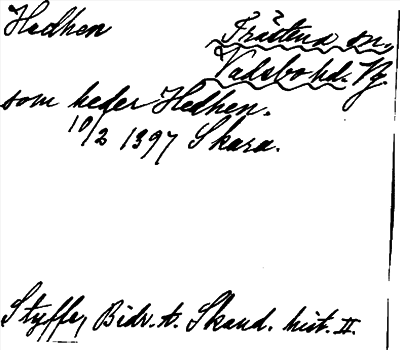 Hedhen
Fråstena sn.
Vadsbo hd. Vg.
som heder Hedhen.
10/2 1397 Skara.
Styffe, Bidr. t. Skand. hist. II.